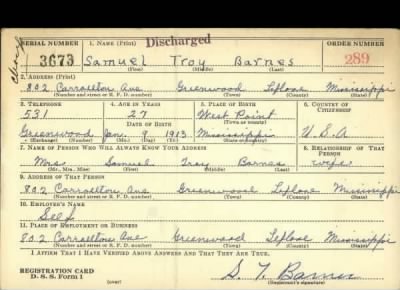 Discharged
SERIAL NUMBER 1. NAME (Print) ORDER NUMBER
3673 Samuel Troy Barnes 289
(First) (Middle) (Last)
2. ADDRESS (Print)
802 Carrollton Ave Greenwood Leflore Mississippi
(Number and street or R. F. D. number) (Town) (County) (State)
3. TELEPHONE 4. AGE IN YEARS 5. PLACE OF BIRTH 6. COUNTRY OF CITIZENSHIP
531 27 West Point
DATE OF BIRTH (Town or county)
Greenwood Jan. 9 1913 Mississippi U.S.A
(Exchange) (Number) (Mo.) (Day) (Yr.) (State or country)
7. NAME OF PERSON WHO WILL ALWAYS KNOW YOUR ADDRESS 8. RELATIONSHIP OF THAT PERSON
Mrs. Samuel Troy Barnes wife
(Mr., Mrs., Miss) (First) (Middle) (Last)
9. ADDRESS OF THAT PERSON
802 Carrollton Ave Greenwood Leflore Mississippi
(Number and street or R. F. D. number) (Town) (County) (State)
10. EMPLOYER'S NAME
Self
11. PLACE OF EMPLOYMENT OR BUSINESS
802 Carrollton Ave Greenwood Leflore Mississippi
(Number and street or R. F. D. number) (Town) (County) (State)
I AFFIRM THAT I HAVE VERIFIED ABOVE ANSWERS AND THAT THEY ARE TRUE.
REGISTRATION CARD
D. S. S. Form 1 (over) S. T. Barnes
(Registrant's signature)